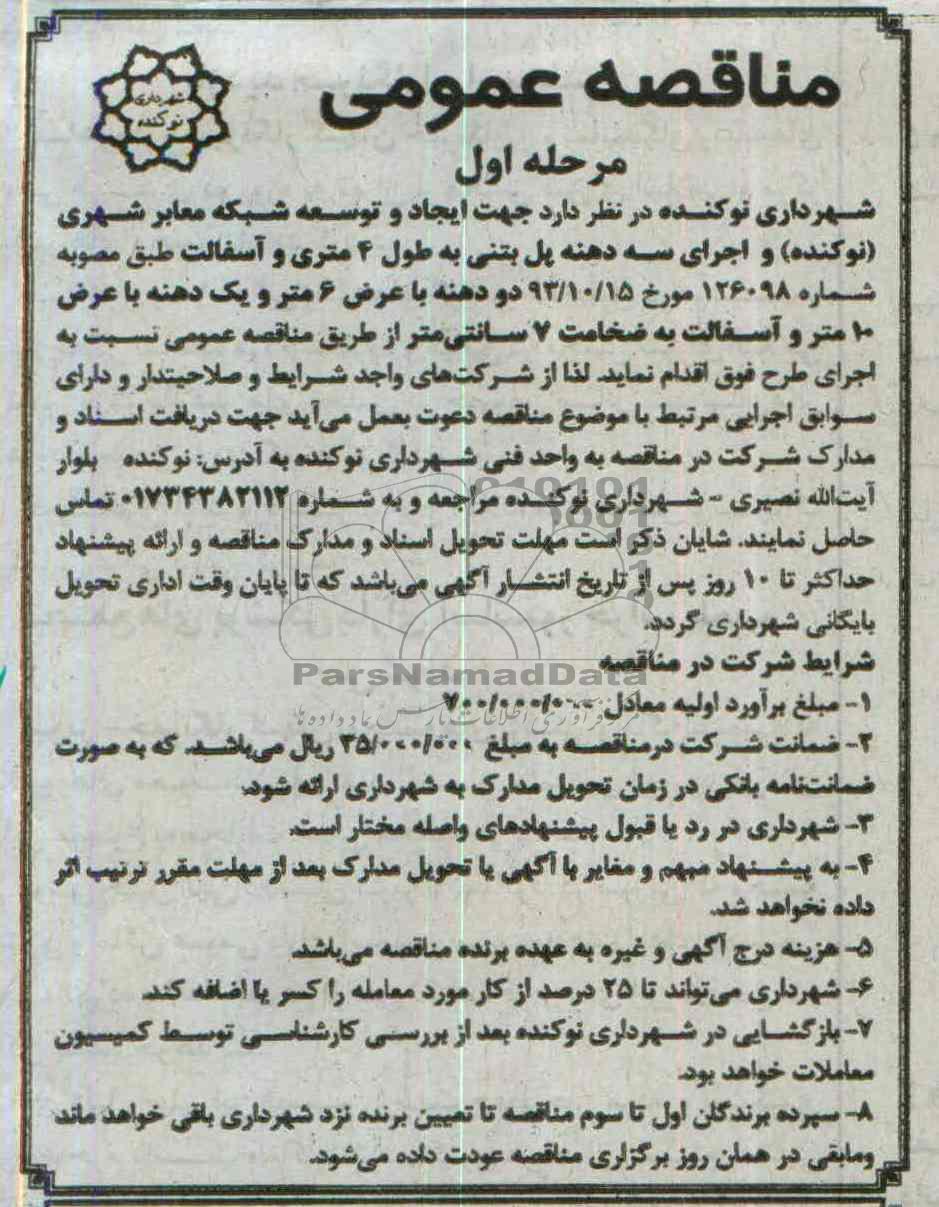 مناقصه عمومی
شهرداری
نوکنده
مرحله اول
شهرداری نوکنده در نظر دارد جهت ایجاد و توسعه شبکه معابر شهری
(نوکنده) و اجرای سه دهنه پل بتنی به طول ۴ متری و آسفالت طبق مصوبه
شماره ۱۲۶۰۹۸ مورخ ۹۳/۱۰/۱۵ دو دهنه با عرض ۶ متر و یک دهنه با عرض
۱۰ متر و آسفالت به ضخامت ۷ سانتی‌متر از طریق مناقصه عمومی نسبت به
اجرای طرح فوق اقدام نماید. لذا از شرکت‌های واجد شرایط و صلاحیتدار و دارای
سوابق اجرایی مرتبط با موضوع مناقصه دعوت بعمل می‌آید جهت دریافت اسناد و
مدارک شرکت در مناقصه به واحد فنی شهرداری نوکنده به آدرس: نوکنده بلوار
آیت‌الله نصیری - شهرداری نوکنده مراجعه و به شماره ۰۱۷۳۴۳۸۲۱۱۲ تماس
حاصل نمایند. شایان ذکر است مهلت تحویل اسناد و مدارک مناقصه و ارائه پیشنهاد
حداکثر تا ۱۰ روز پس از تاریخ انتشار آگهی می‌باشد که تا پایان وقت اداری تحویل
بایگانی شهرداری گردد.
شرایط شرکت در مناقصه
ParsNamadData
۱- مبلغ برآورد اولیه معادل ۷۰۰/۰۰۰/۰۰۰
مرکز فرآوری اطلاعات پارس نماد داده ها
۲- ضمانت شرکت درمناقصه به مبلغ ۳۵/۰۰۰/۰۰۰ ریال می‌باشد. که به صورت
ضمانت‌نامه بانکی در زمان تحویل مدارک به شهرداری ارائه شود.
۳- شهرداری در رد یا قبول پیشنهادهای واصله مختار است.
۴- به پیشنهاد مبهم و مغایر با آگهی یا تحویل مدارک بعد از مهلت مقرر ترتیب اثر
داده نخواهد شد.
۵- هزینه درج آگهی و غیره به عهده برنده مناقصه می‌باشد.
۶- شهرداری می‌تواند تا ۲۵ درصد از کار مورد معامله را کسر یا اضافه کند.
۷- بازگشایی در شهرداری نوکنده بعد از بررسی کارشناسی توسط کمیسیون
معاملات خواهد بود.
۸- سپرده برندگان اول تا سوم مناقصه تا تعیین برنده نزد شهرداری باقی خواهد ماند
ومابقی در همان روز برگزاری مناقصه عودت داده می‌شود.